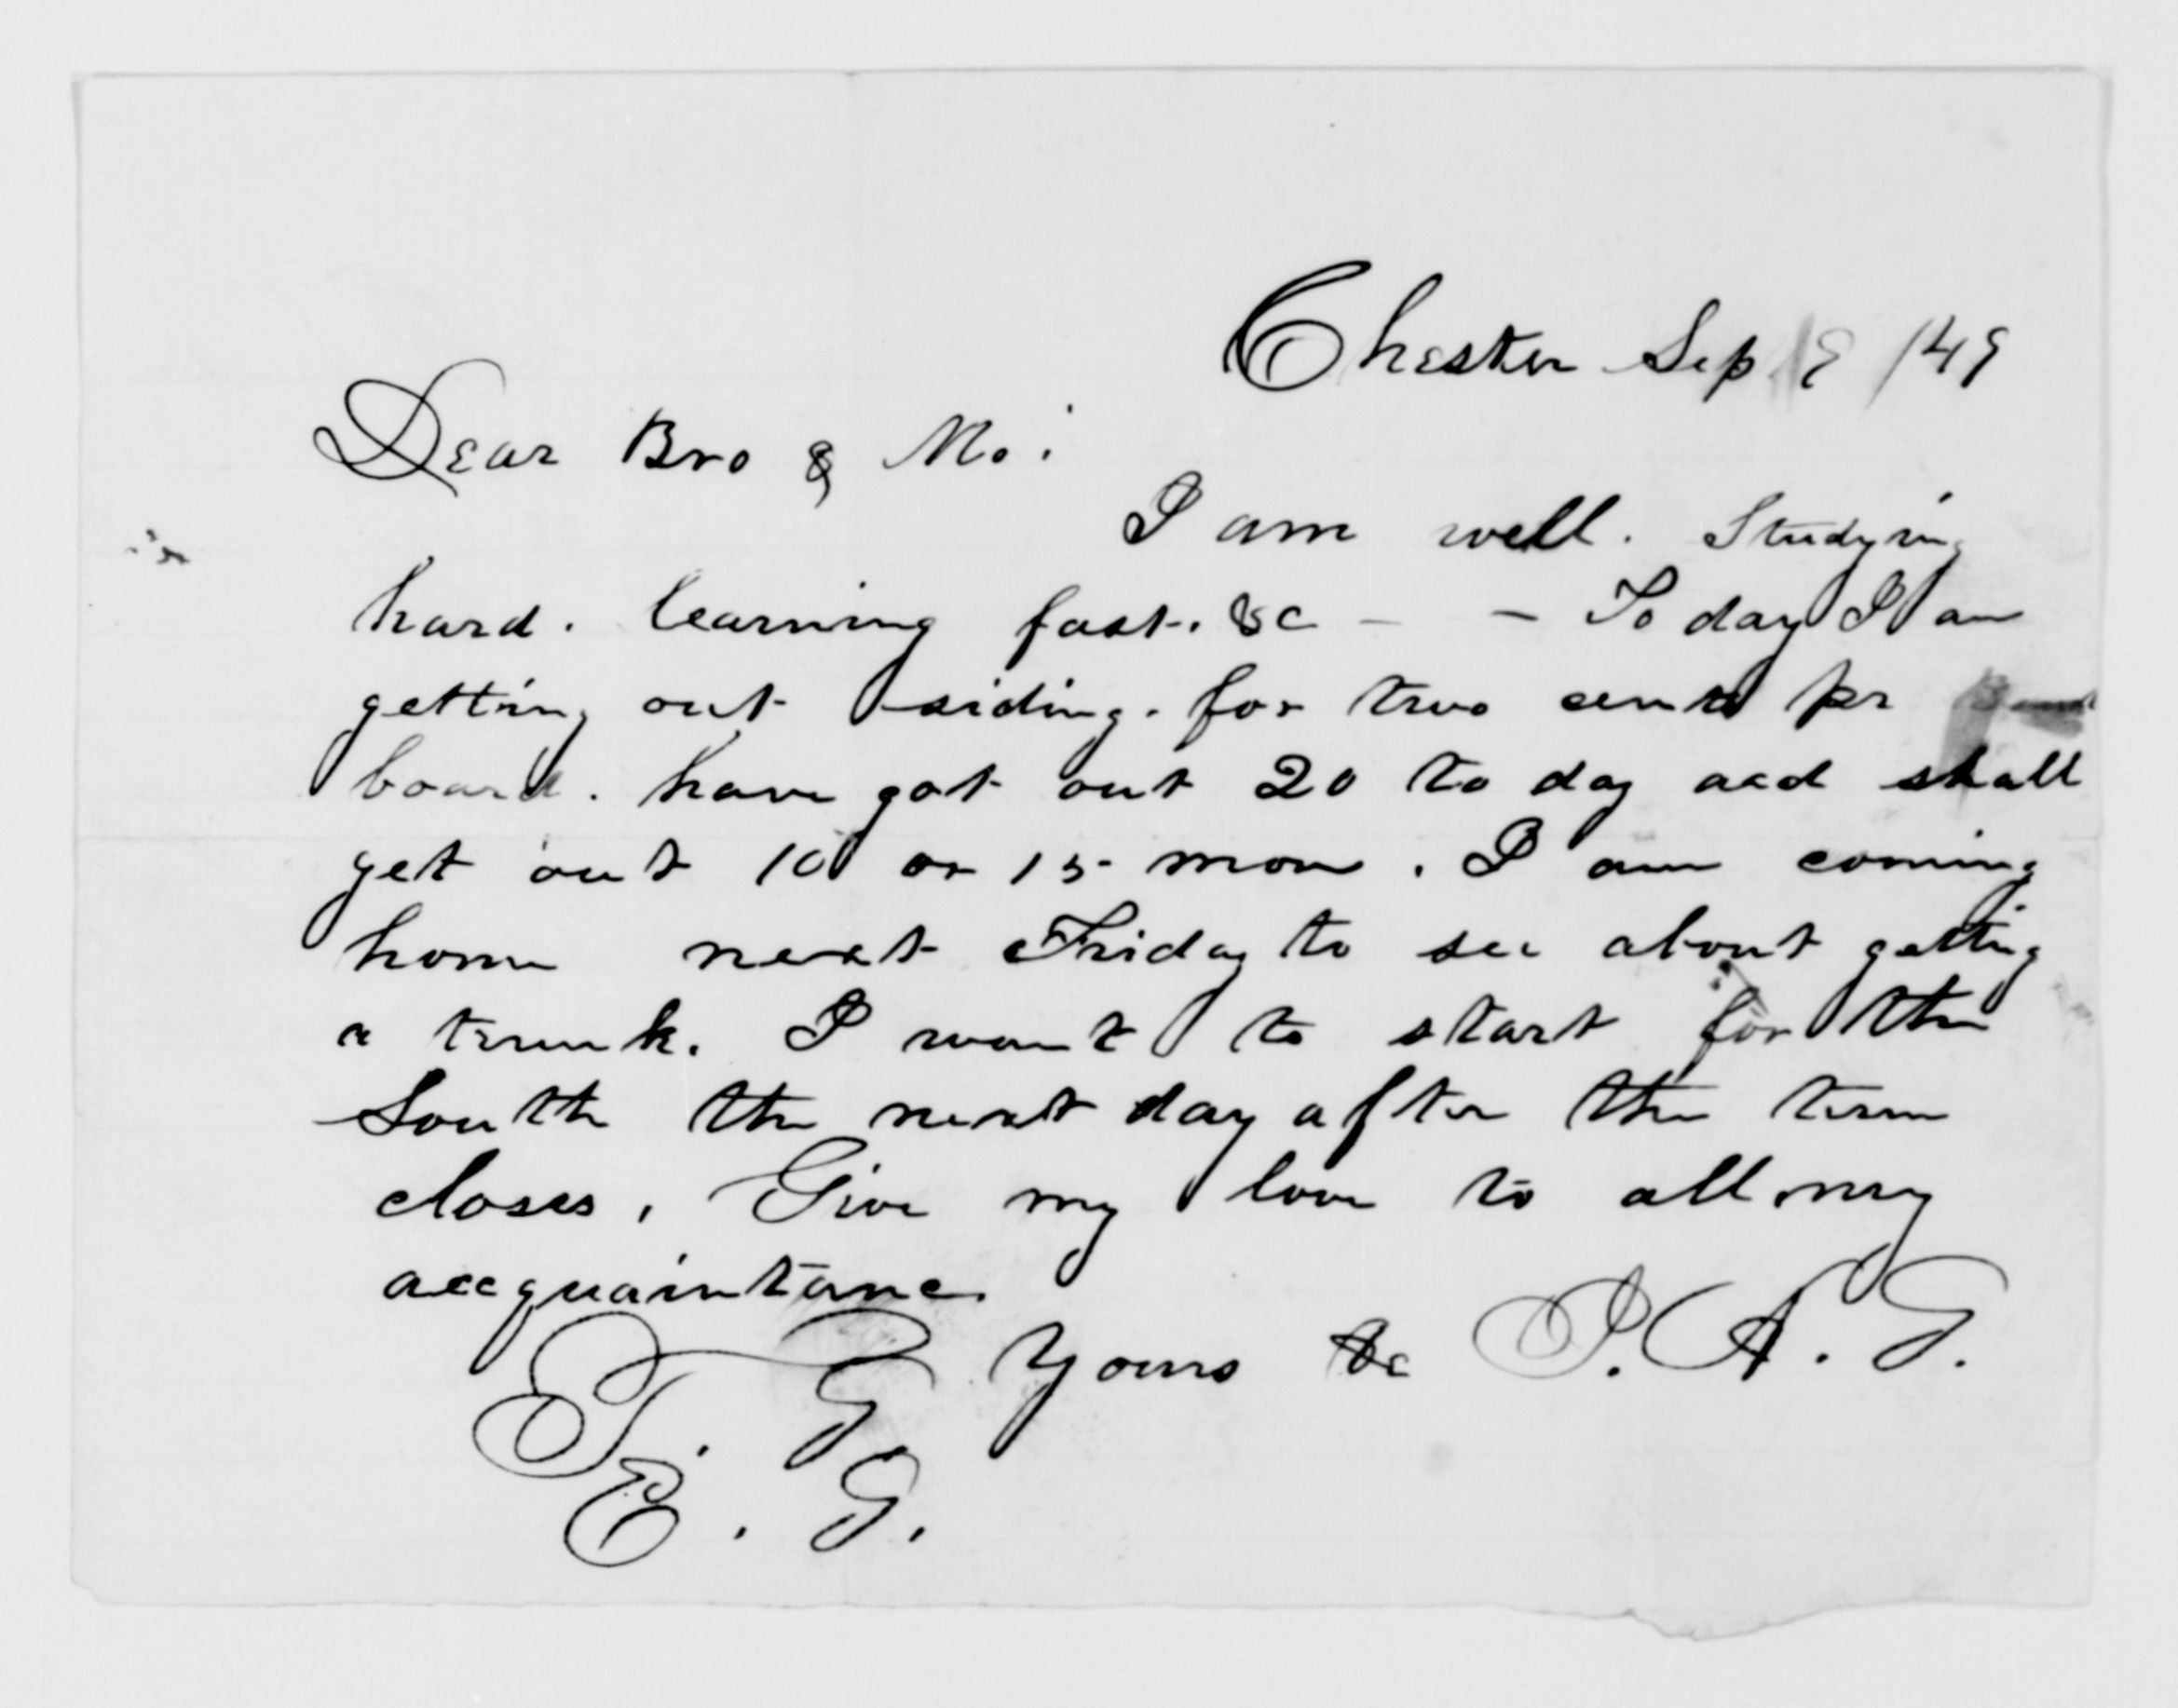 Chester Sep /49
Dear Bro & Mo:
I am well. Studying
hard. learning fast. &c - - To day I am
getting out siding. for two cents pr
board. have got out 20 to day and shall
get out 10 or 15 more. I am coming
home next Friday to see about getting
a trunk. I want to start for the
South the next day after the term
closes. Give my love to all my
accquaintance.
Yours &c J. A. G.
T. G
E. G.